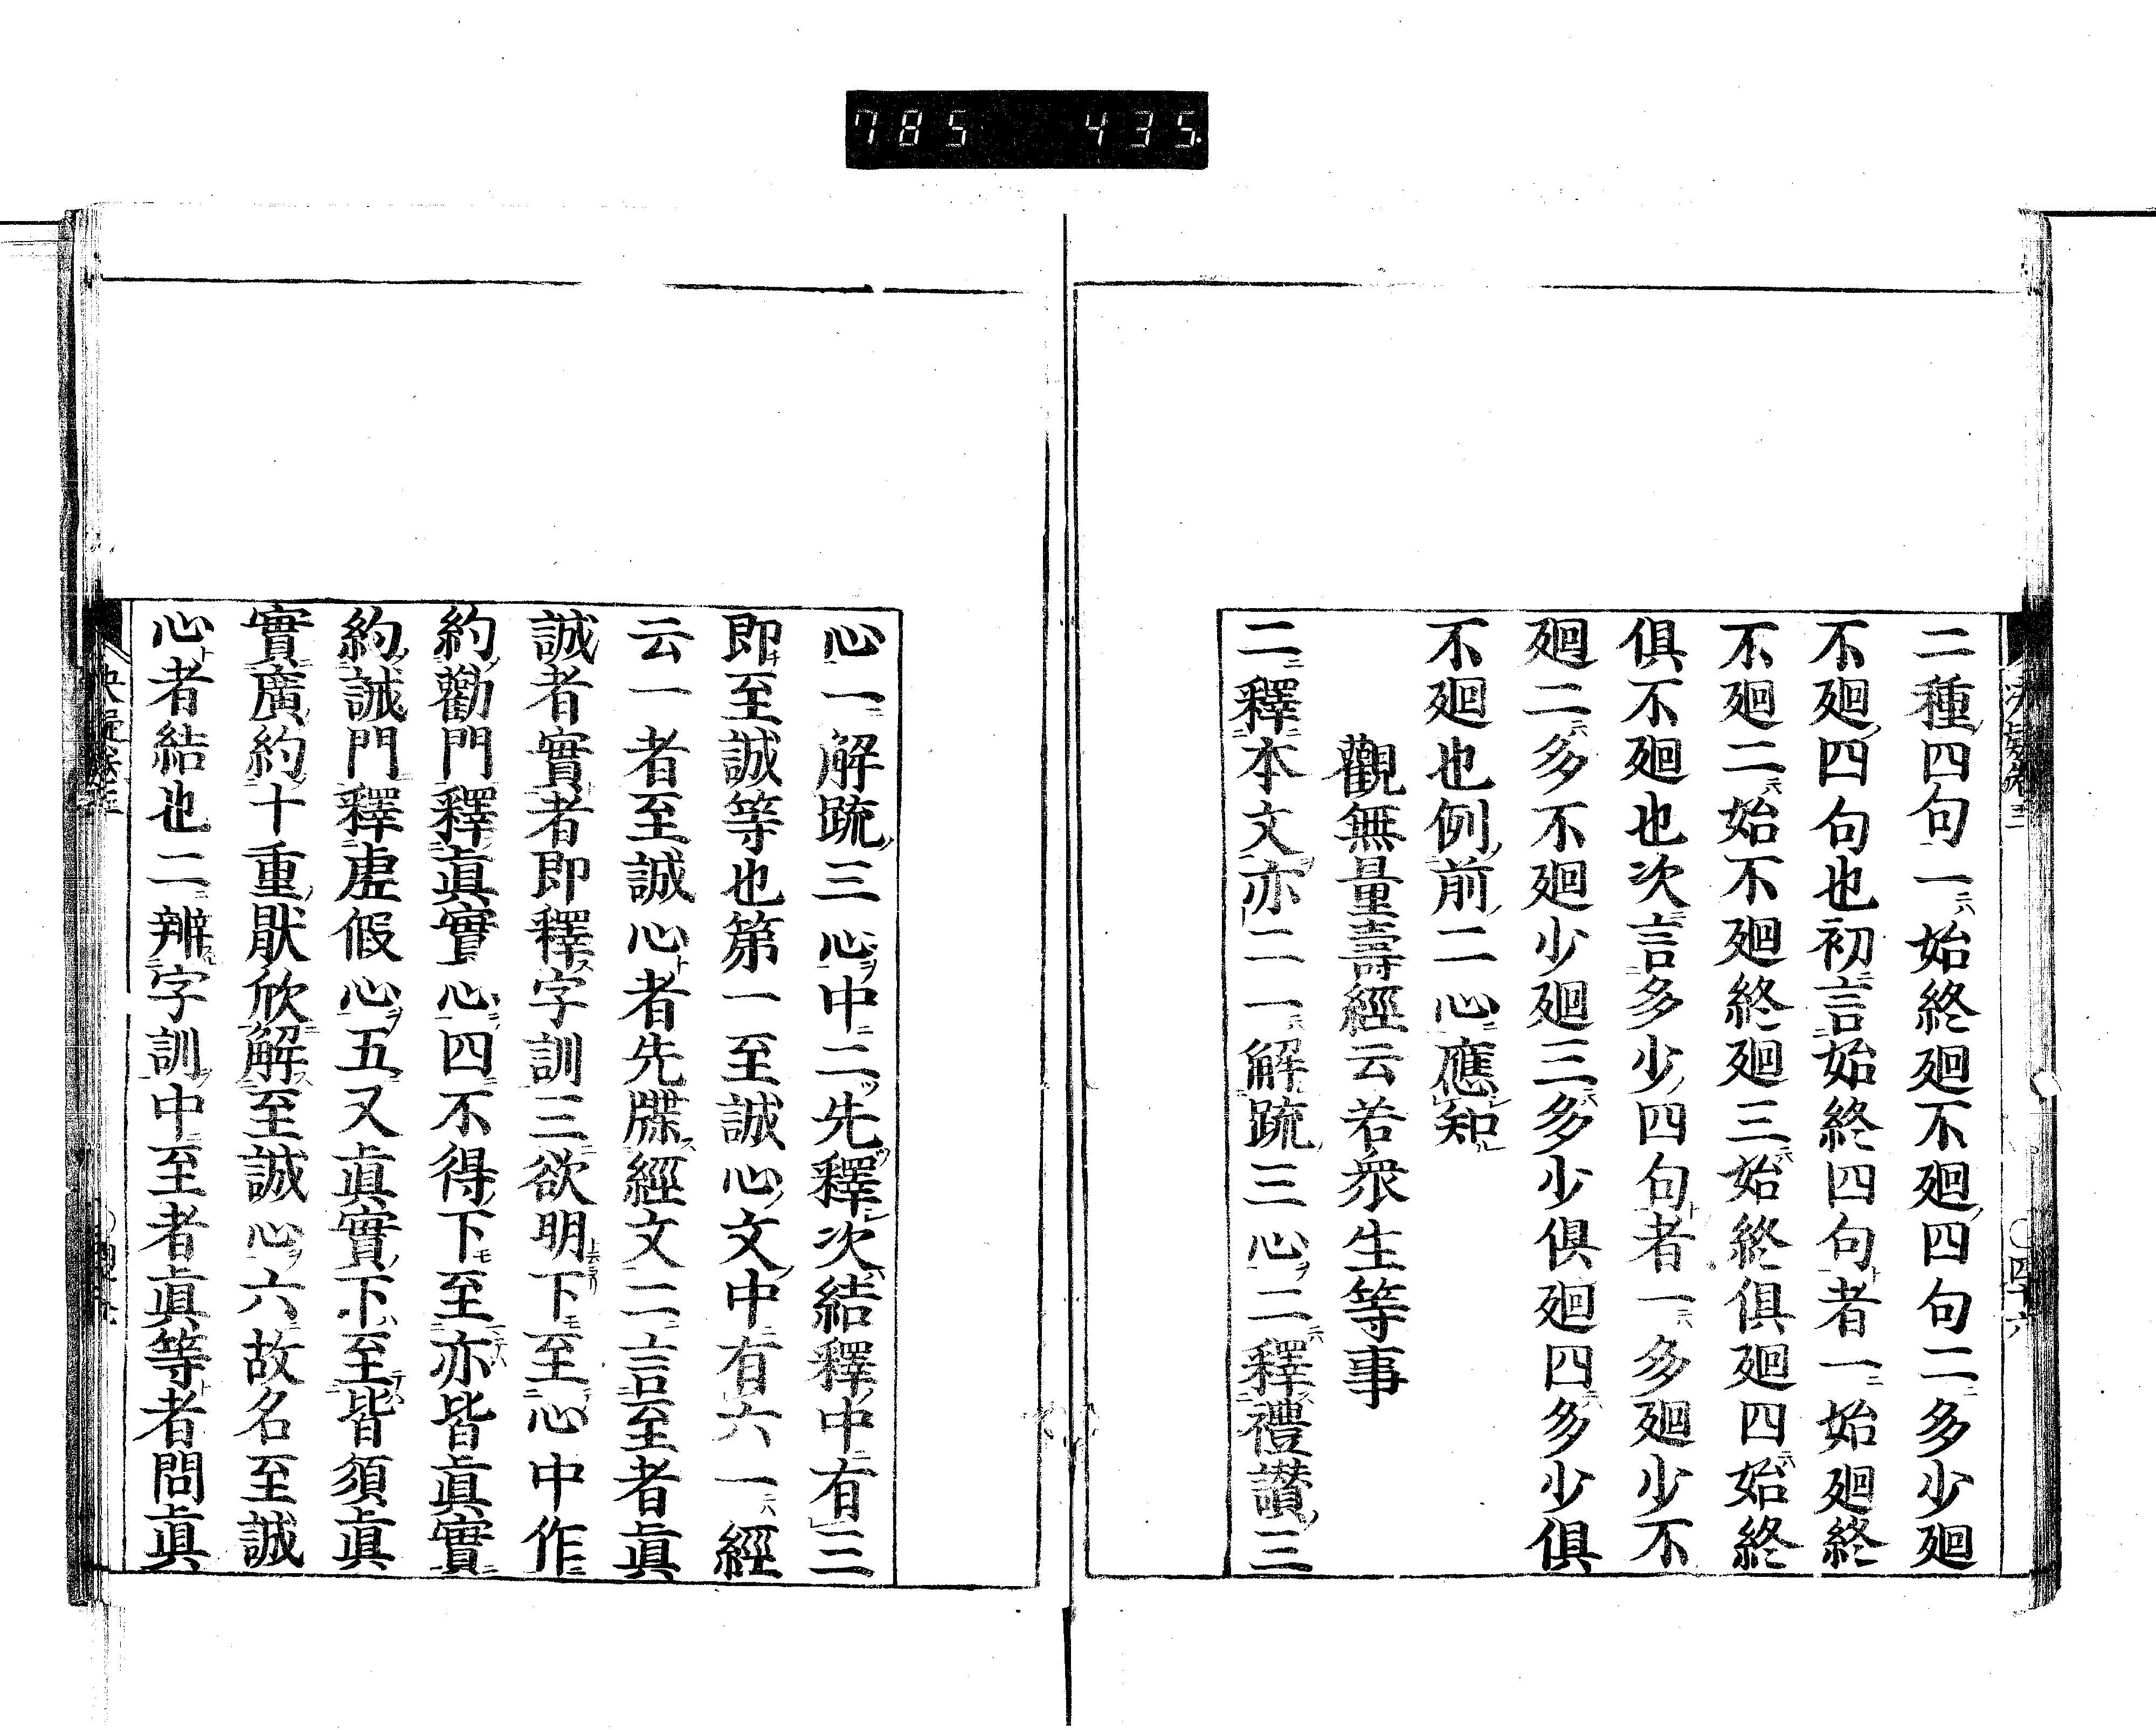 785 435
二種四句一始終廻不廻四句二多少廻
不廻四句也初言始終四句者一始廻終
不廻二始不廻終廻三始終俱廻四始終
俱不廻也次言多少四句者一多廻少不
廻二多不廻少廻三多少俱廻四多少俱
不廻也例前二心應知
觀無量壽經云若衆生等事
二釋本文亦二一解䟽三心二釋禮讃三
心一解䟽三心中二先釋次結釋中有三
即至誠等也第一至誠心文中有六一經
云一者至誠心者先牒經文二言至者眞
誠者實者即釋字訓三欲明下至心中作
約勸門釋眞實心四不得下至亦皆眞實
約誡門釋虛假心五又眞實下至皆須眞
實廣約十重厭欣解至誠心六故名至誠
心者結也二辨字訓中至者眞等者問眞